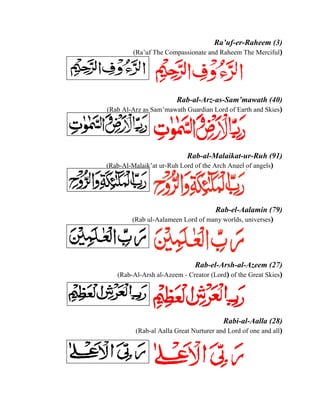 Ra’uf-er-Raheem (3)
(Ra’uf The Compassionate and Raheem The Merciful)
الرَّءُوْفِ الرَّحِيْمِ الرَّءُوْفِ الرَّحِيْمِ
Rab-al-Arz-as-Sam’mawath (40)
(Rab Al-Arz as Sam’mawath Guardian Lord of Earth and Skies)
رَبِّ الْاَرْضِ وَالسَّمٰوٰتِ رَبِّ الْاَرْضِ وَالسَّمٰوٰتِ
Rab-al-Malaikat-ur-Ruh (91)
(Rab-Al-Malaik’at ur-Ruh Lord of the Arch Angel of angels)
رَبِّ الْمَلٰٓئِكَةِ وَالرُّوْحِ رَبِّ الْمَلٰٓئِكَةِ وَالرُّوْحِ
Rab-el-Aalamin (79)
(Rab ul-Aalameen Lord of many worlds, universes)
رَبِّ الْعٰلَمِيْنَ رَبِّ الْعٰلَمِيْنَ
Rab-el-Arsh-al-Azeem (27)
(Rab-Al-Arsh al-Azeem - Creator (Lord) of the Great Skies)
رَبِّ الْعَرْشِ الْعَظِيْمِ رَبِّ الْعَرْشِ الْعَظِيْمِ
Rabi-al-Aalla (28)
(Rab-al Aalla Great Nurturer and Lord of one and all)
رَبِّيَ الْاَعْلٰى رَبِّيَ الْاَعْلٰى